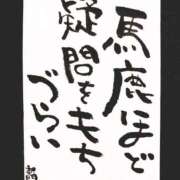 馬鹿ほど
疑問をもち
づらい